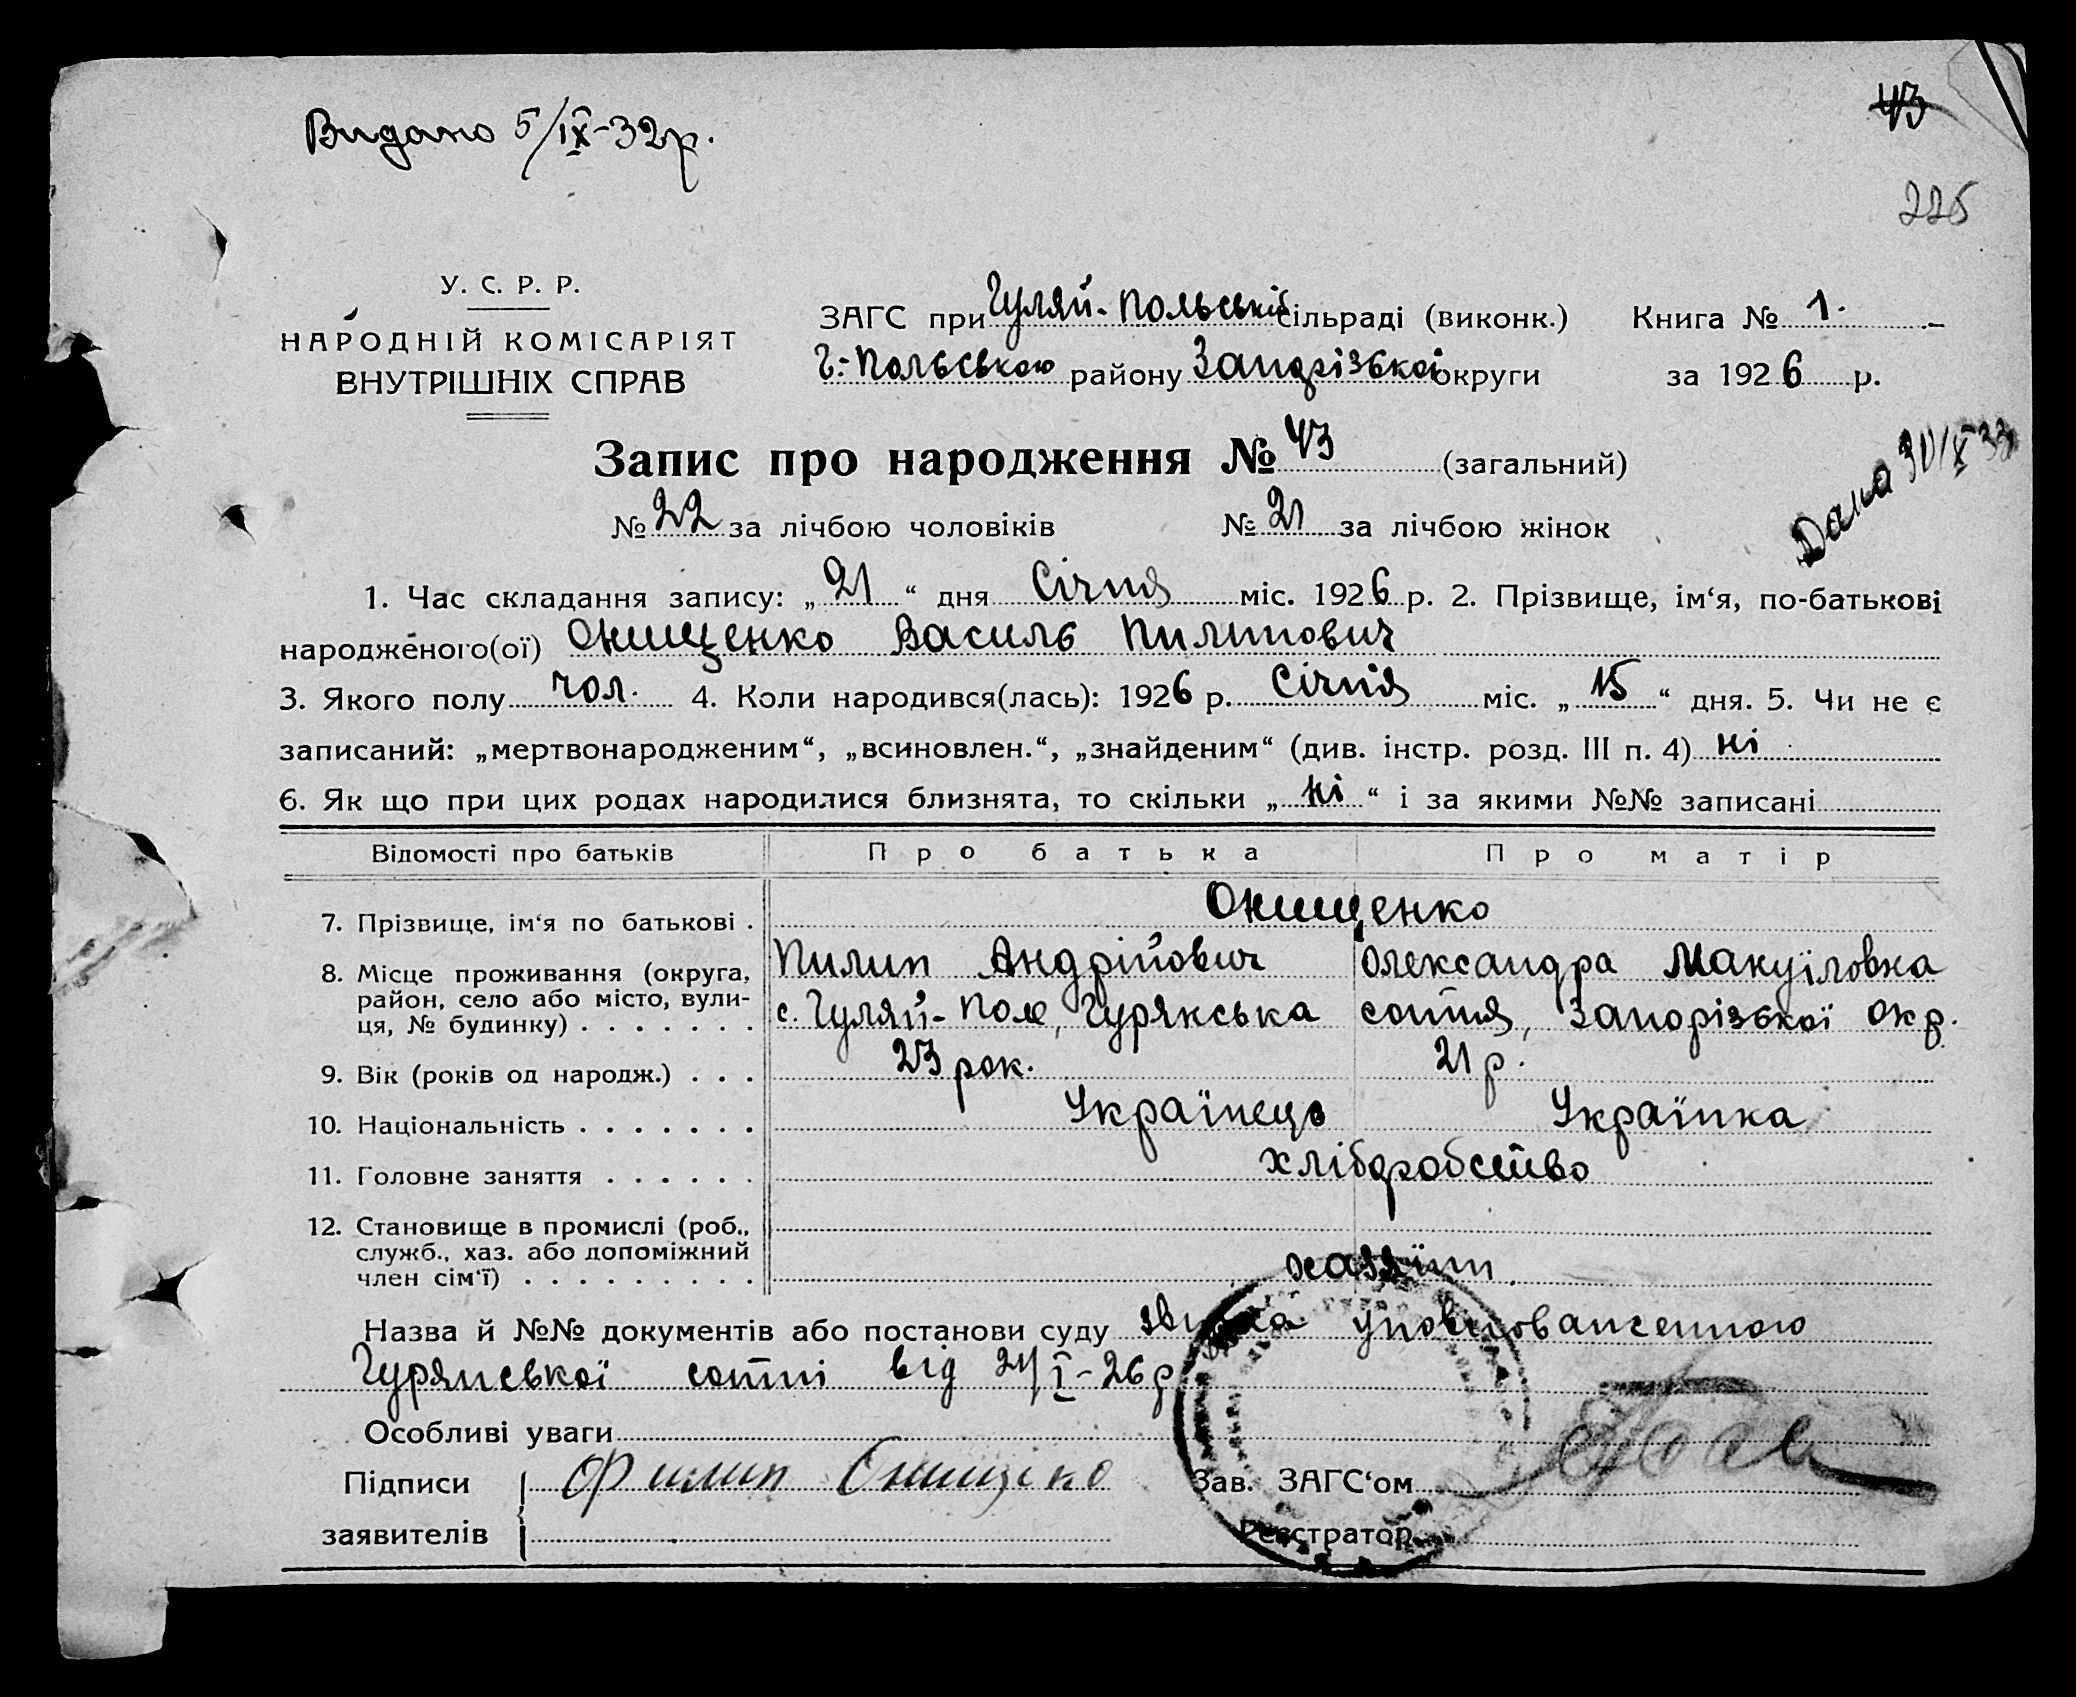 Видано 5/IX-32р.
43
226
У. С. Р. Р.
НАРОДНІЙ КОМІСАРІЯТ
ВНУТРІШНІХ СПРАВ
ЗАГС при Гуляй-Польській сільраді (виконк.) Книга № 1.
Г-Польською району Запорізької округи за 1926 р.
Запис про народження № 43 (загальний)
Дана 30/X 33
№ 22 за лічбою чоловіків № 21 за лічбою жінок
1. Час складання запису: „21“ дня Січня міс. 1926 р. 2. Прізвище, ім‘я, по-батькові
народженого(ої) Онищенко Василь Пилипович
3. Якого полу чол. 4. Коли народився(лась): 1926 р. Січня міс. „15“ дня. 5. Чи не є
записаний: „мертвонародженим“, „всиновлен.“, „знайденим“ (див. інстр. розд. III п. 4) ні
6. Як що при цих родах народилися близнята, то скільки „ні“ і за якими №№ записані
Відомості про батьків Про батька Про матір
7. Прізвище, ім‘я по батькові . Онищенко
Пилип Андрійович Олександра Мануїловна
8. Місце проживання (округа,
район, село або місто, вули-
ця, № будинку) . . . . . . . с. Гуляй-Поле, Гурякська сотня, Запорізької окр.
9. Вік (років од народж.) . . . 23 рок. 21 р.
10. Національність . . . . . . . Українець Українка
11. Головне заняття . . . . . . хлібдробство
12. Становище в промислі (роб.,
служб., хаз. або допоміжний
член сім‘ї) . . . . . . . . . хазяїни.
Назва й №№ документів або постанови суду
сотні від 21/I-26р
Особливі уваги
Підписи Филип Онищенко Зав. ЗАГС‘ом
заявителів Реєстратор